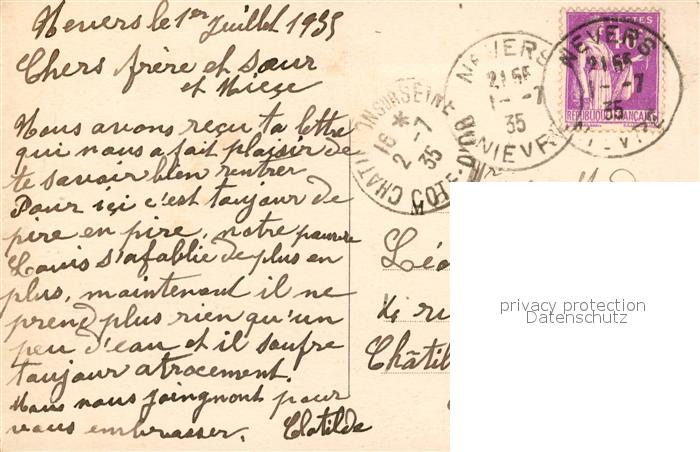 Nevers le 1er Juillet 1935
Chers frère et sœur
et Niège
Nous avons reçu ta lettre
qui nous a fait plaisir de
te savoir bien rentrer
Pour içi c'est toujour de
pire en pire, notre pauvre
Louis s'afablie de plus en
plus, maintenant il ne
prend plus rien qu'un
peu d'eau et il soufre
toujour atrocement.
Nous nous joingnont pour
vous embrasser. Clotilde
CHATILLON SUR SEINE
16 *
2 -7
35
COTE-D'OR
NEVERS
21 55
1 - -7
35
NIEVRE
POSTES
REPUBLIQUE FRANÇAISE
NEVERS
21 55
1 - -7
35
NIEVRE
M
Léo
ru
Châtil
privacy protection
Datenschutz